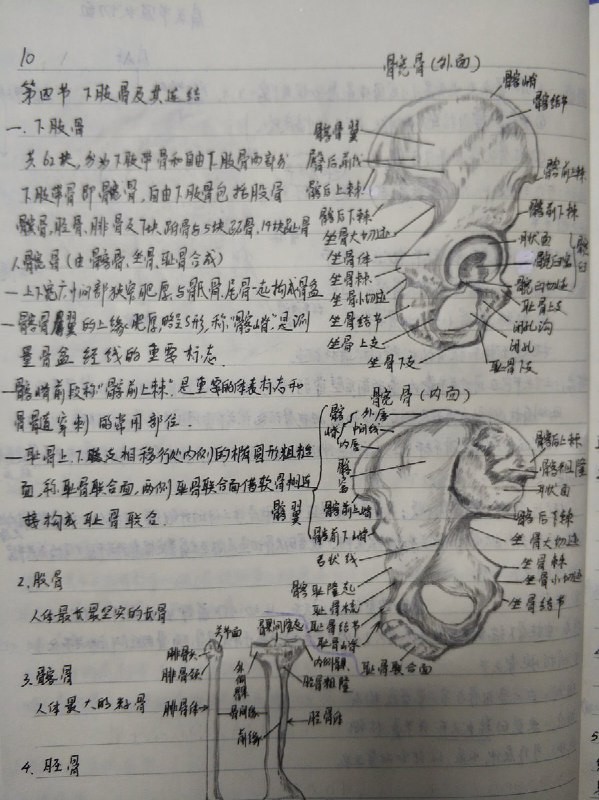 10
第四节 下肢骨及其连结
一.下肢骨
共62块,分为下肢带骨和自由下肢骨两部分
下肢带骨即髋骨,自由下肢骨包括股骨
髌骨,胫骨,腓骨及7块跗骨与5块跖骨,14块趾骨
1.髋骨(由髂骨,坐骨,耻骨合成)
一上下宽广中间部狭窄肥厚与骶骨,尾骨一起构成骨盆
一髂骨翼的上缘肥厚,略呈S形,称"髂嵴".是测
量骨盆径线的重要标志.
一髂嵴前段称"髂前上棘".是重要的体表标志和
骨髓穿刺的常用部位.
一耻骨上,下支相移行处内侧的椭圆形粗糙
面,称耻骨联合面,两侧耻骨联合面借软骨相连
结构成耻骨联合
2.股骨
人体最长最坚实的长骨
3.髌骨
人体最大的籽骨
4.胫骨
髋骨(外面)
髂嵴
髂结节
髂骨翼
臀后前线
髂后上棘
髂后下棘
坐骨大切迹
坐骨体
坐骨棘
坐骨小切迹
坐骨结节
坐骨上支
坐骨下支
髂前上棘
髂前下棘
月状面
髋臼窝
髋臼切迹
髋臼
耻骨上支
闭孔沟
闭孔
耻骨下支
髋骨(内面)
髂嵴
外唇
中间线
内唇
髂窝
髂翼
髂前上嵴
髂前下嵴
弓状线
髂耻隆起
耻骨梳
耻骨结节
耻骨联合面
髂后上棘
髂粗隆
耳状面
髂后下棘
坐骨大切迹
坐骨棘
坐骨小切迹
坐骨结节
关节面
腓骨头
腓骨颈
腓骨体
髁间隆起
外侧髁
骨间缘
前缘
内侧髁
胫骨粗隆
胫骨体